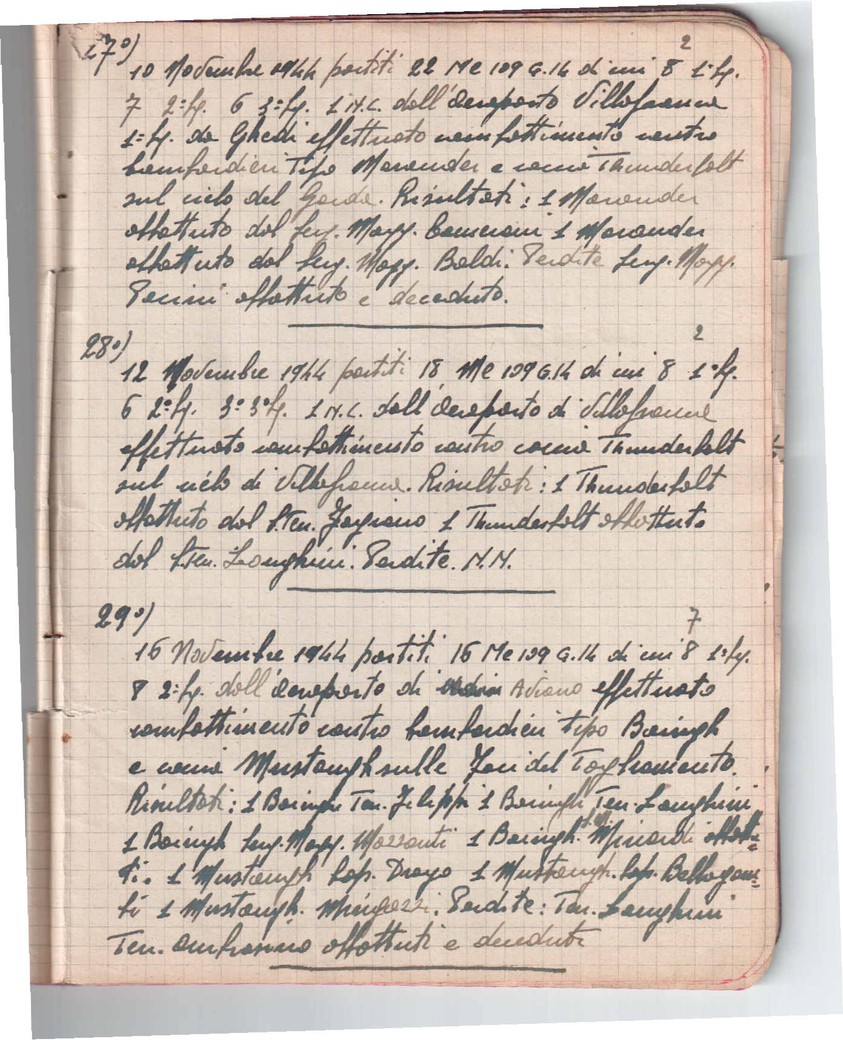 27°)
2
10 Novembre 1944 partiti 22 Me 109 G.14 di cui 8 1ªSq.
7 2ªSq. 6 3ªSq. 1 N.C. dall'Aeroporto Villafranca
1ªSq. da Ghedi effettuato combattimento contro
bombardieri Tipo Marauder e caccia Thunderbolt
sul cielo del Garda. Risultati: 1 Marauder
abbattuto dal Serg. Magg. Camerani 1 Marauder
abbattuto dal Serg. Magg. Baldi. Perdite Serg. Magg.
Pacini abbattuto e deceduto.
28°)
2
12 Novembre 1944 partiti 18 Me 109 G.14 di cui 8 1ªSq.
6 2ªSq. 3ª 3ªSq. 1 N.C. dall'Aeroporto di Villafranca
effettuato combattimento contro caccia Thunderbolt
sul cielo di Villafranca. Risultati: 1 Thunderbolt
abbattuto dal S.Ten. Fagiano 1 Thunderbolt abbattuto
dal S.Ten. Longhini. Perdite. N.N.
29°)
7
16 Novembre 1944 partiti 16 Me 109 G.14 di cui 8 1ªSq.
8 2ªSq. dall'Aeroporto di Aviano effettuato
combattimento contro bombardieri tipo Boringh
e caccia Mustangh sulle Foci del Tagliamento.
Risultati: 1 Boringh Ten. Filippi 1 Boringh Ten. Longhini
1 Boringh Serg. Magg. Mazzanti 1 Boringh. Minardi abbattu=
ti. 1 Mustangh Cap. Drago 1 Mustangh. Cap. Bellagam=
bi 1 Mustangh. Mingozzi. Perdite: Ten. Longhini
Ten. Ambrosino abbattuti e deceduti